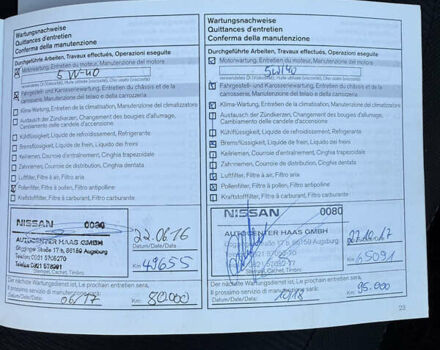 Wartungsnachweise
Quittances d'entretien
Conferma della manutenzione
Durchgeführte Arbeiten, Travaux effectués, Operazioni eseguite
Motorwartung, Entretien du moteur, Manutenzione del motore
5W-40
Fahrgestell- und Karosseriewartung, Entretien du châssis et de la
carrosserie, Manutenzione del telaio e della carrozzeria
Klima-Wartung, Entretien de la climatisation, Manutenzione del climatizzatore
Austausch der Zündkerzen, Changement des bougies d'allumage,
Cambiamento delle candele d'accensione
Kühlflüssigkeit, Liquide de refroidissement, Refrigerante
Bremsflüssigkeit, Liquide de frein, Liquido dei freni
Keilriemen, Courroie d'entretien, Cinghia trapezoidale
Zahnriemen, Courroie de distribution, Cinghia dentata
Luftfilter, Filtre à air, Filtro aria
Pollenfilter, Filtre à pollens, Filtro antipolline
Kraftstofffilter, Filtre à carburant, Filtro carburante
NISSAN 0080
AUTOCENTER HAAS GMBH
Gögginger Straße 17 b, 86159 Augsburg
Telefon 0821 5705270
Telefax 0821 578981
Stempel, Cachet, Timbro
22.06.16
Datum/Date/Data
Km: 49655
Der nächste Wartungsdienst ist, Le prochain entretien sera,
Il prossimo servizio di manutenzione sarà:
06/17
Datum/Date/Data
Km: 80.000
Wartungsnachweise
Quittances d'entretien
Conferma della manutenzione
Durchgeführte Arbeiten, Travaux effectués, Operazioni eseguite
Motorwartung, Entretien du moteur, Manutenzione del motore
5W40
Fahrgestell- und Karosseriewartung, Entretien du châssis et de la
carrosserie, Manutenzione del telaio e della carrozzeria
Klima-Wartung, Entretien de la climatisation, Manutenzione del climatizzatore
Austausch der Zündkerzen, Changement des bougies d'allumage,
Cambiamento delle candele d'accensione
Kühlflüssigkeit, Liquide de refroidissement, Refrigerante
Bremsflüssigkeit, Liquide de frein, Liquido dei freni
Keilriemen, Courroie d'entretien, Cinghia trapezoidale
Zahnriemen, Courroie de distribution, Cinghia dentata
Luftfilter, Filtre à air, Filtro aria
Pollenfilter, Filtre à pollens, Filtro antipolline
Kraftstofffilter, Filtre à carburant, Filtro carburante
NISSAN 0080
AUTOCENTER HAAS GMBH
17 b, 86159 Augsburg
Stempel, Cachet, Timbro
Datum/Date/Data
Km: 65091
Der nächste Wartungsdienst ist, Le prochain entretien sera,
Il prossimo servizio di manutenzione sarà:
10/18
Datum/Date/Data
Km: 95.000
23